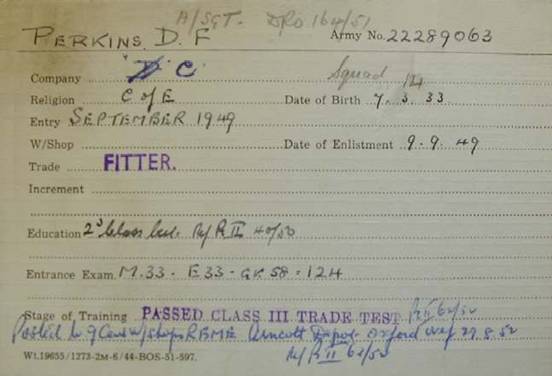 A/SGT. DRO 164/51
PERKINS. D. F Army No. 22289063
Company C Squad 14
Religion C of E Date of Birth 7. 3. 33
Entry SEPTEMBER 1949
W/Shop Date of Enlistment 9. 9. 49
Trade FITTER.
Increment
Education 2d Class Cert. 40/50
Entrance Exam. M.33 - E33 - GK 58 = 124
Stage of Training PASSED CLASS III TRADE TEST 62/52
Posted to 9 W/shops REME Arncott Depot Oxford 27.8.52
II 62/52
Wt.19655/1273-2M-6/44-BOS-51-597.